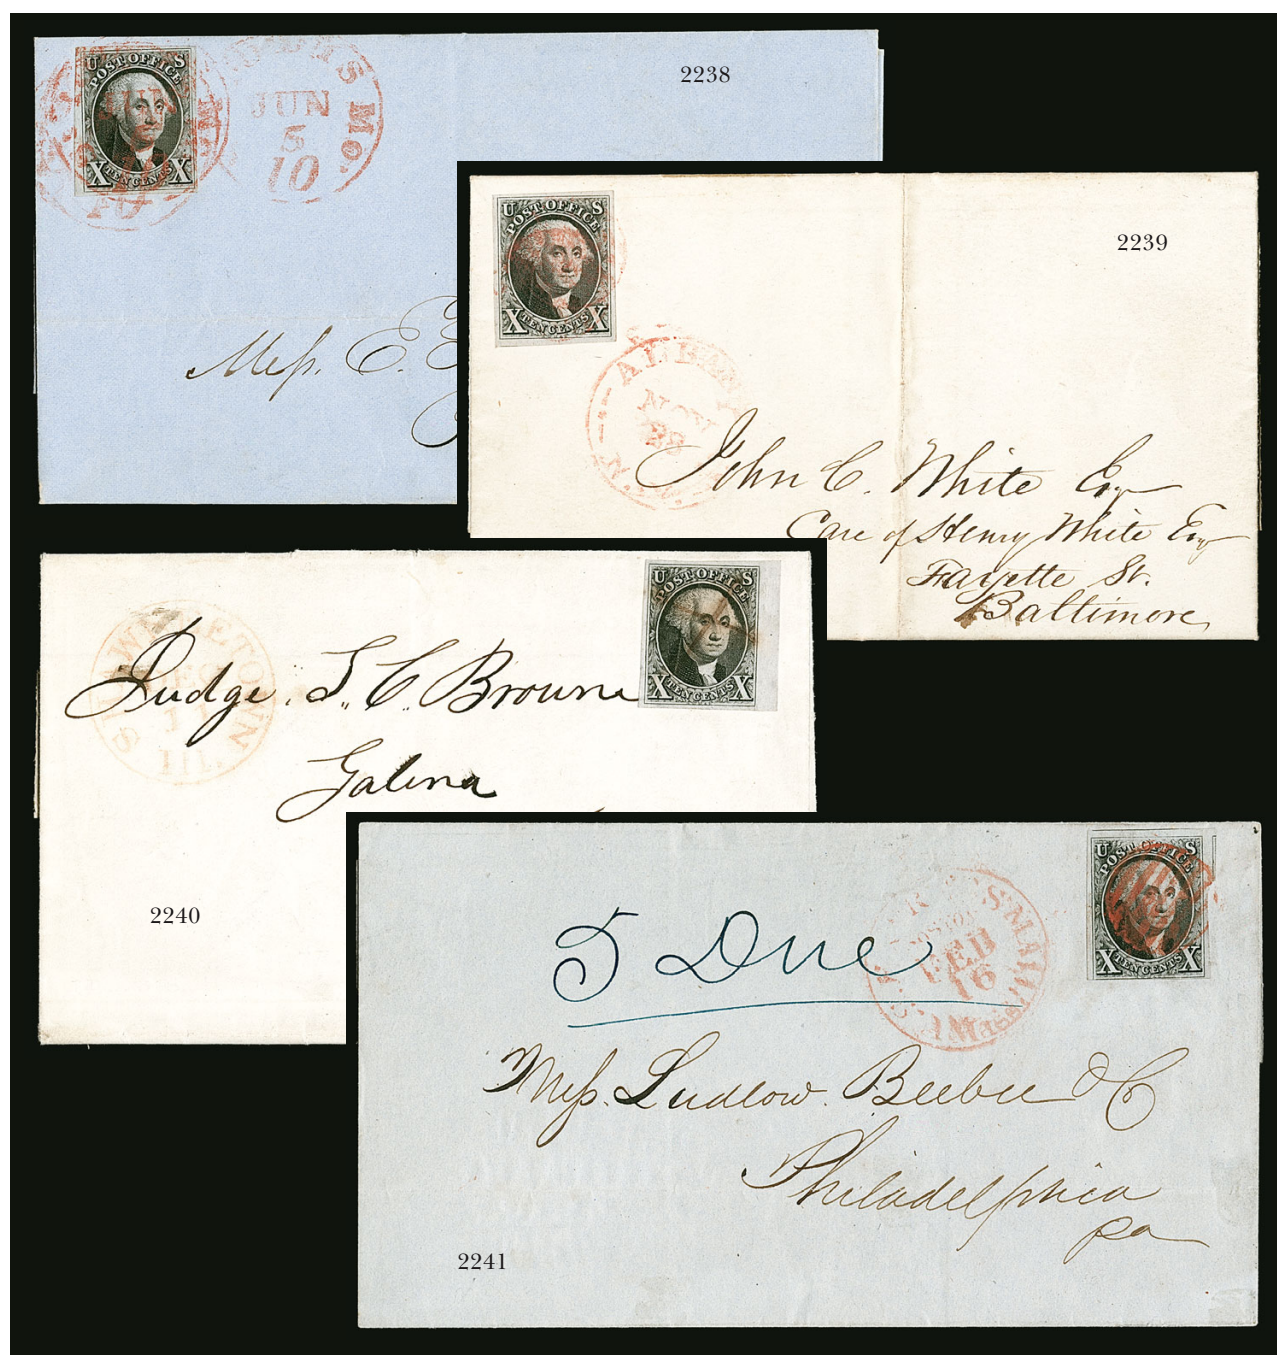 U S
POST OFFICE
X TEN CENTS X
10
JUN
5
10
Mo.
2238
Mess. E.
U S
POST OFFICE
X TEN CENTS X
2239
ALBANY
NOV
N.Y.
John C. White Esq
Care of Henry White Esq
Fayette St.
Baltimore
U S
POST OFFICE
X TEN CENTS X
SHAWNEETOWN
DEC
11
Ill.
Judge. S. C. Browne
Galena
2240
U S
POST OFFICE
X TEN CENTS X
U.S. EXPRESS MAIL
BOSTON
FEB
16
Mass.
5 Due
Mess. Ludlow. Beebee & C
Philadelphia
pa
2241